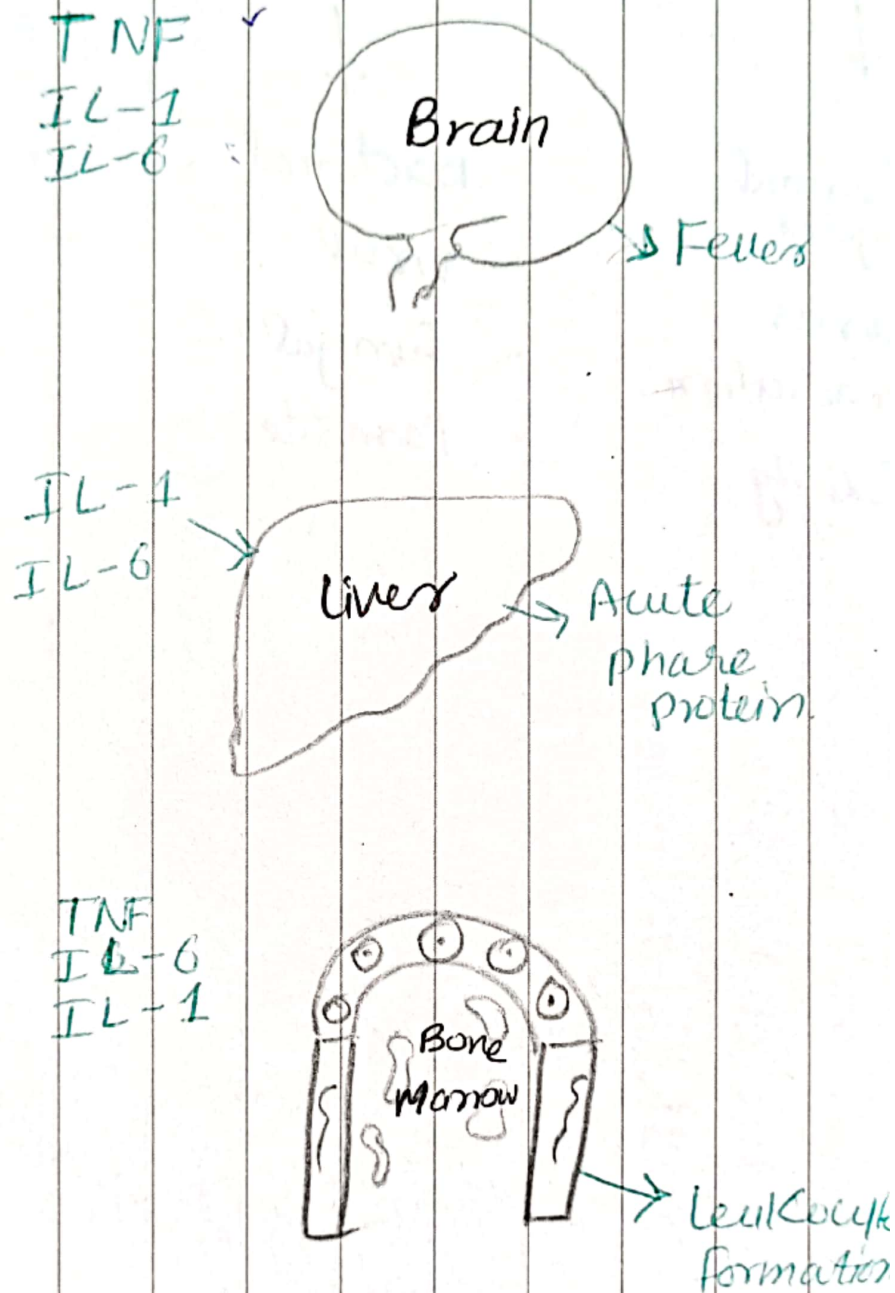 TNF
IL-1
IL-6
Brain
Fever
IL-1
IL-6
Liver
Acute
phase
protein
TNF
IL-6
IL-1
Bone
Marrow
Leukocyte
formation